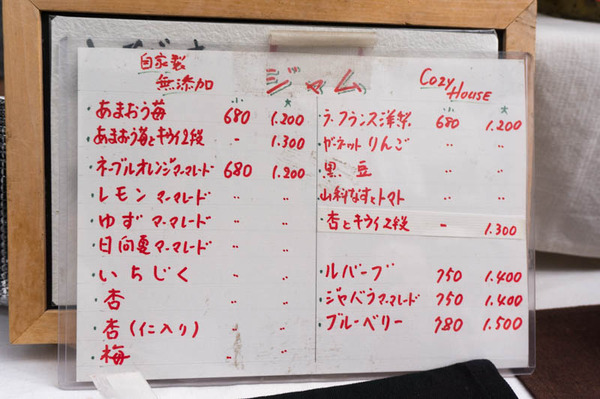 自家製
無添加
ジャム
Cozy
House
小 大
・あまおう苺 680 1.200
・あまおう苺とキウイ2段 - 1.300
・ネーブルオレンジマーマレード 680 1.200
・レモン マーマレード 〃 〃
・ゆず マーマレード 〃 〃
・日向夏マーマレード 〃 〃
・いちじく 〃 〃
・杏 〃 〃
・杏(仁入り) 〃 〃
・梅 〃 〃
小 大
・ラ・フランス洋梨 680 1.200
・ガーネットりんご 〃 〃
・黒豆 〃 〃
・山利なすとトマト 〃 〃
・杏とキウイ2段 - 1.300
・ルバーブ 750 1.400
・ジャバラマーマレード 750 1.400
・ブルーベリー 780 1.500